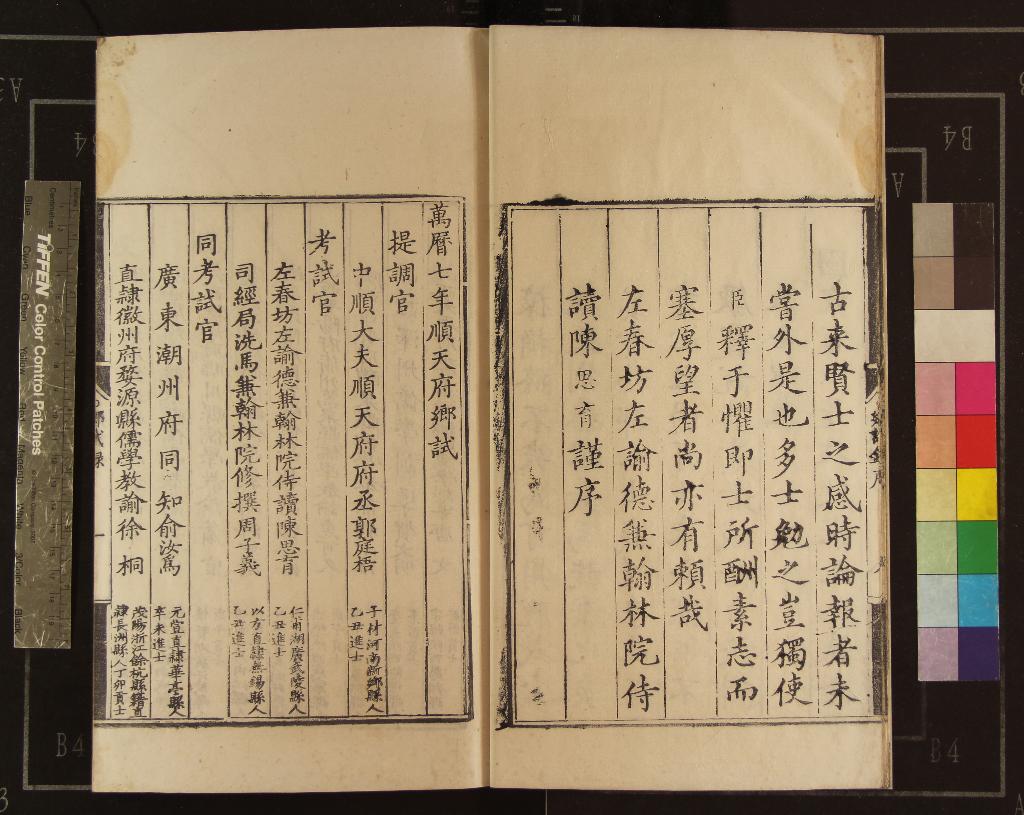 古来賢士之感時論報者未
嘗外是也多士勉之豈獨使
臣釋于懼即士所酬素志而
塞厚望者尚亦有賴哉
左春坊左諭德兼翰林院侍
讀陳思育謹序
萬曆七年順天府鄉試
提調官
中順大夫順天府府丞郭庭梧
子材河南新鄉縣人
乙丑進士
考試官
左春坊左諭德兼翰林院侍讀陳思育
仁甫湖廣武陵縣人
乙丑進士
司經局洗馬兼翰林院修撰周子義
以方直隸無錫縣人
乙丑進士
同考試官
廣東潮州府同知俞汝為
元宣直隸華亭縣人
辛未進士
直隸徽州府婺源縣儒學教諭徐桐
茂陽浙江餘杭縣籍直
隸長洲縣人丁卯貢士
鄉試錄
一
TIFFEN Color Control Patches
Blue
Green
Black
B4
B4
B4
B4
A3
A